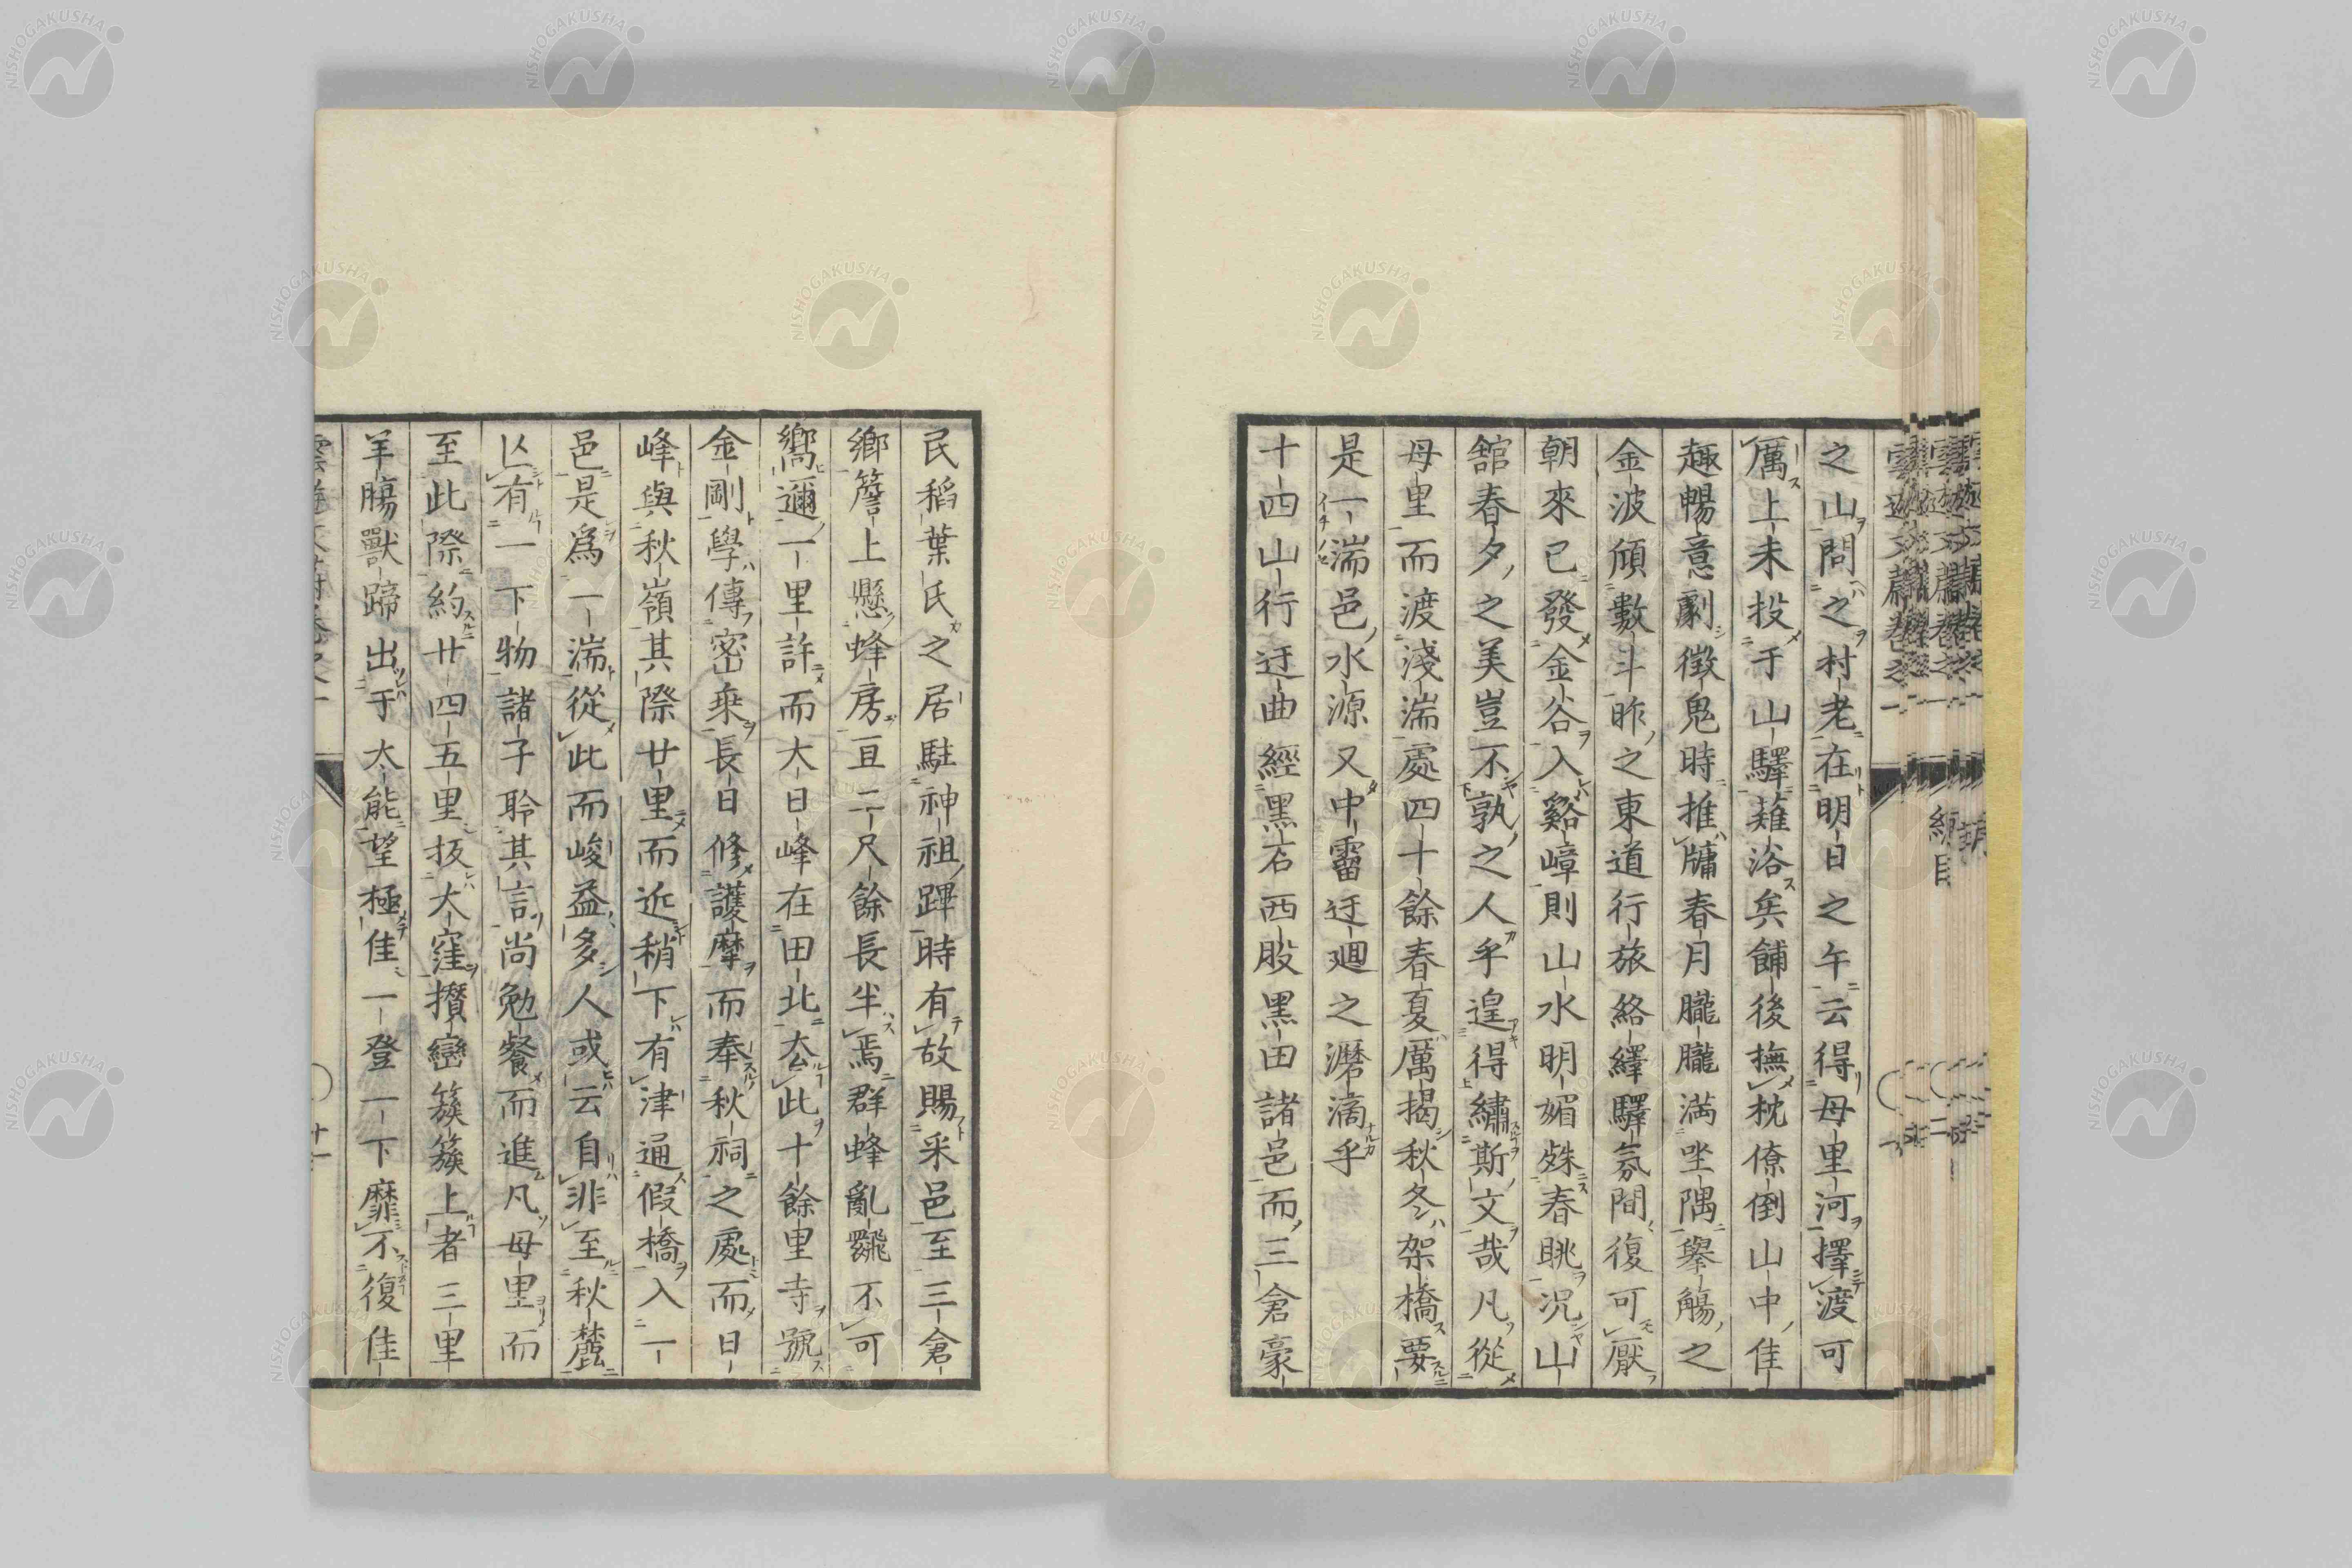 之山問之村老在明日之午云得母里河擇渡可
厲上未投于山驛薙浴矣餔後撫枕僚倒山中佳
趣暢意劇徵鬼時推牖春月朧朧満坐隅擧觴之
金波傾數斗昨之東道行旅絡繹驛氛間復可厭
朝來已發金谷入谿嶂則山水明媚殊春眺况山
舘春夕之美豈不孰之人乎遑得繡斯文哉凡從
母里而渡淺湍處四十餘春夏厲揭秋冬架橋要
是一湍邑水源又中霤迂廻之瀝滴乎
十四山行迂曲經黑石西股黑田諸邑而三倉豪
民稻葉氏之居駐神祖蹕時有故賜采邑至三倉
鄉簷上懸蜂房亘二尺餘長半焉群蜂亂飛不可
嚮邇一里許而大日峰在田北叅此十餘里寺號
金剛學傳密乘長日修護摩而奉秋祠之處而日
峰與秋嶺其際廿里而近稍下有津通假橋入一
邑是爲一湍從此而峻益多人或云自非至秋麓
亾有一下物諸子聆其言尚勉餐而進凡母里而
至此際約廿四五里扳大窪攢巒簇簇上者三里
羊膓獸蹄出于太能望極佳一登一下靡不復佳
NISHOGAKUSHA